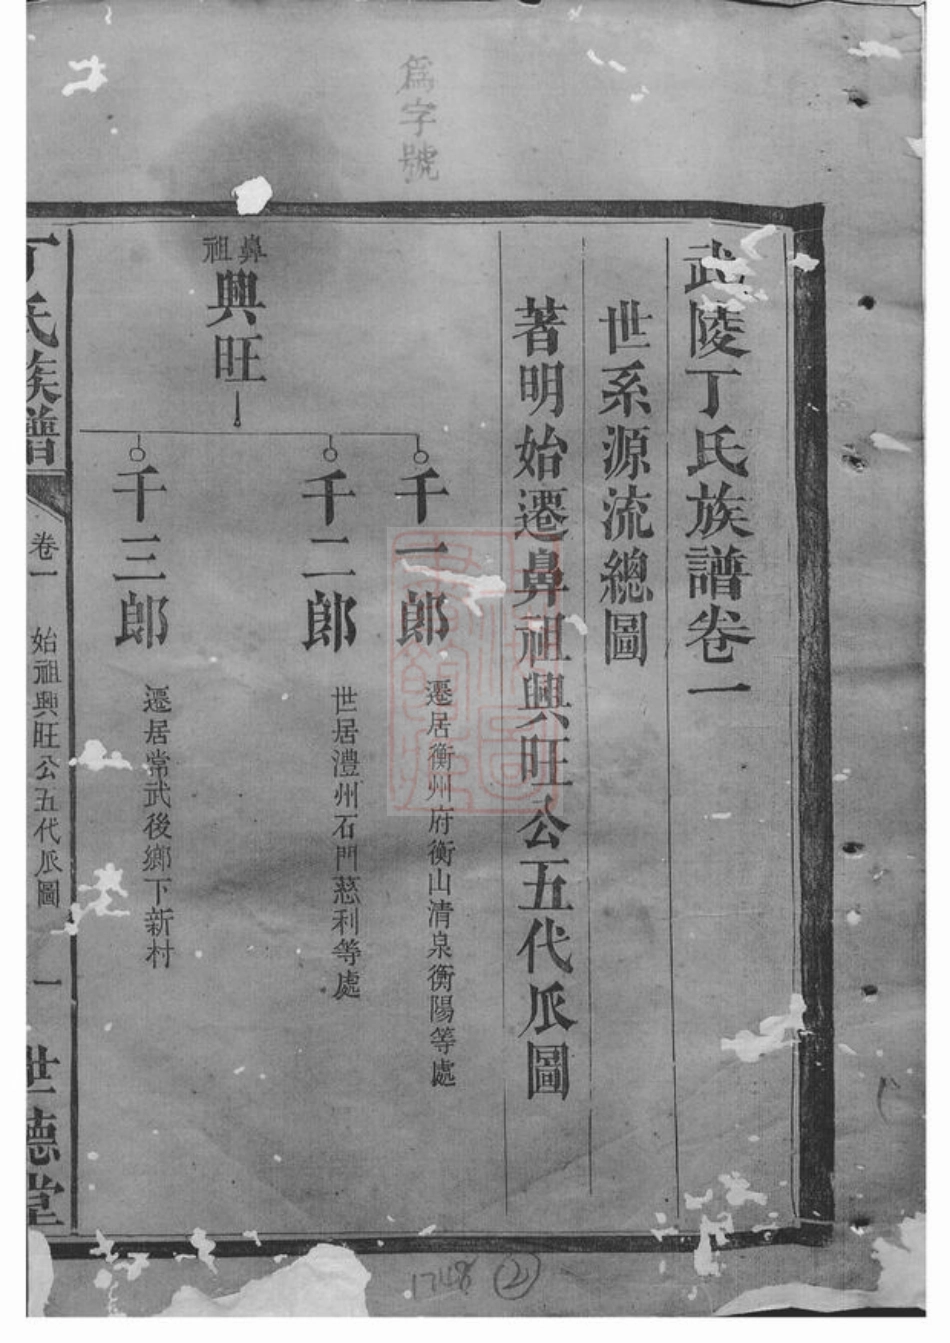 為字號
武陵丁氏族譜卷一
世系源流總圖
著明始遷鼻祖興旺公五代𠂢圖
鼻祖
興旺
千一郎
遷居衡州府衡山清泉衡陽等處
千二郎
世居澧州石門慈利等處
千三郎
遷居常武後鄉下新村
丁氏族譜
卷一
始祖興旺公五代𠂢圖
一
世德堂
1748 ②